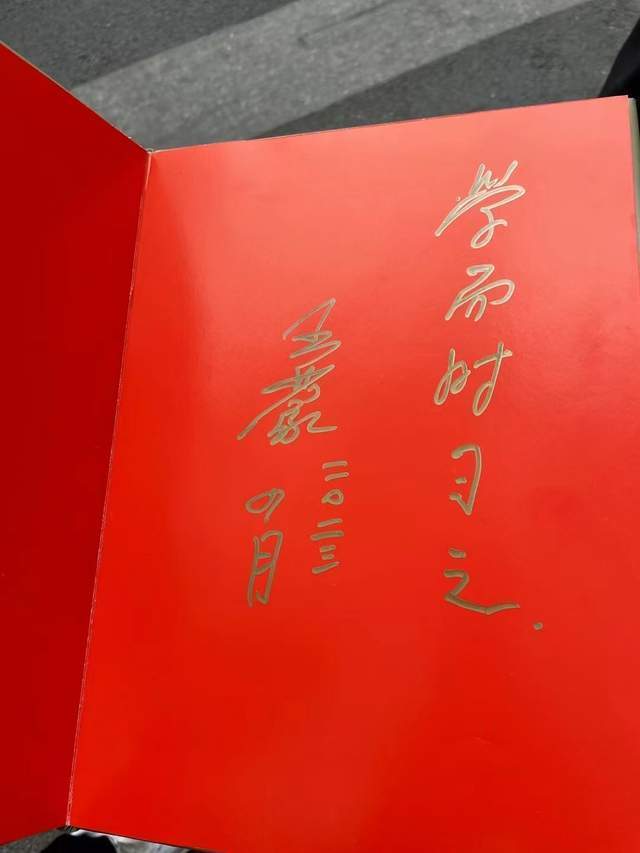 学而时习之.
王蒙
二〇二三
四月